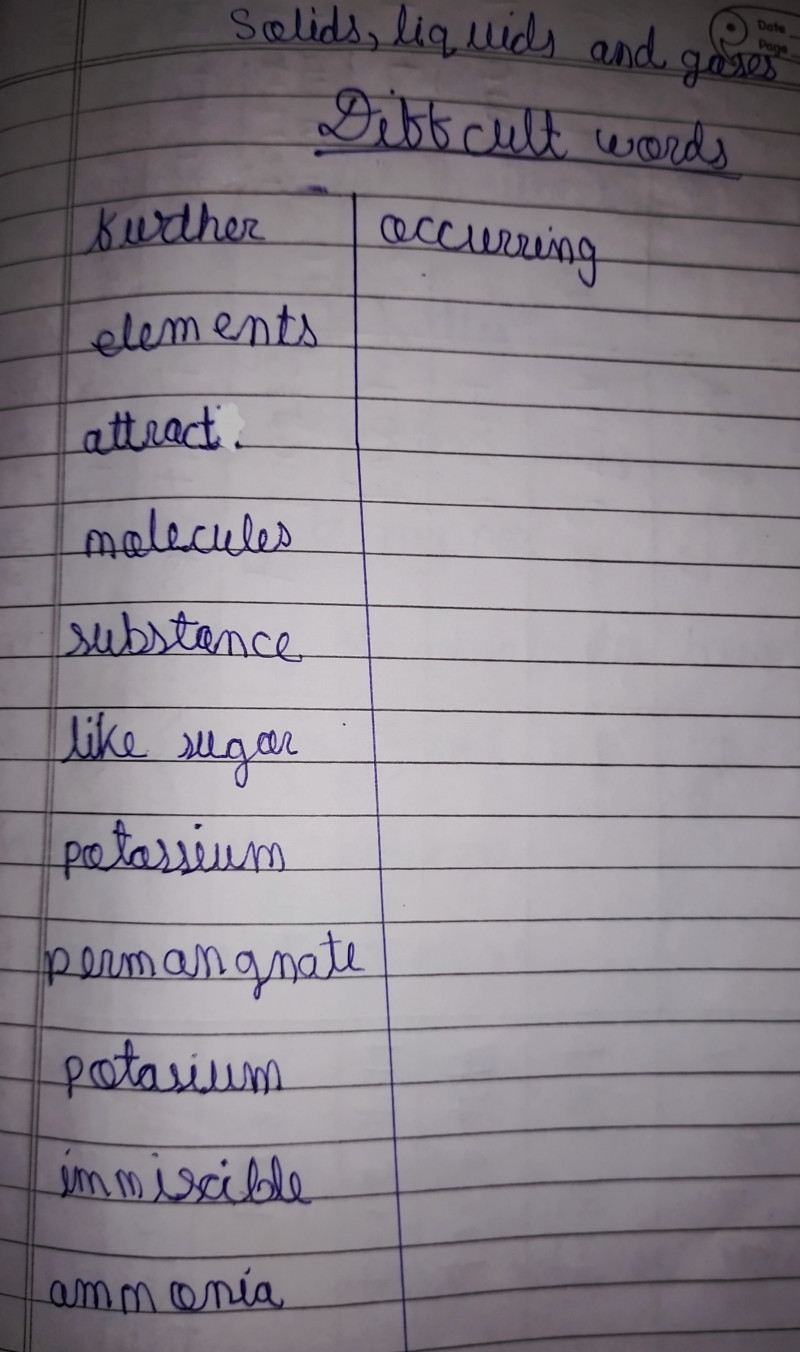 Date
Page
Solids, liquids and gases
Diffcult words
further
elements
attract.
molecules
substance
like sugar
potassium
permangnate
potasium
immiscible
ammonia
occurring